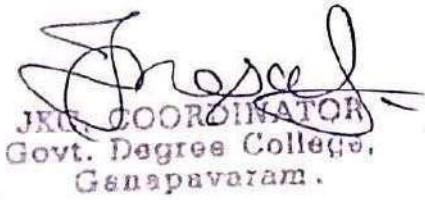 JKC, COORDINATOR
Govt. Degree College,
Ganapavaram.